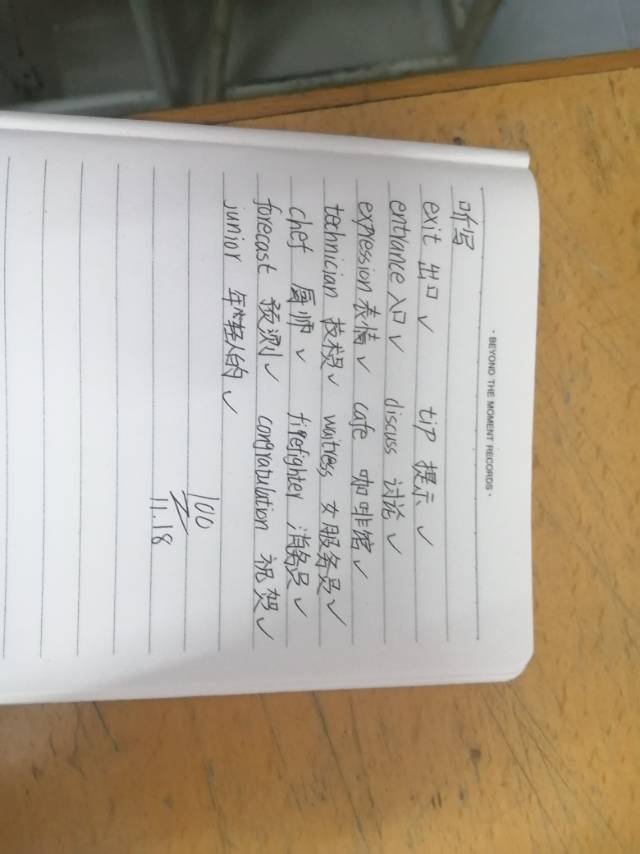 · BEYOND THE MOMENT RECORDS ·
听写
exit 出口 ✓ tip 提示 ✓
entrance 入口 ✓ discuss 讨论 ✓
expression 表情 ✓ cafe 咖啡馆 ✓
technician 技 ✓ waitress 女服务员 ✓
chef 厨师 ✓ firefighter 消务员 ✓
forecast 预测 ✓ congratulation 祝贺 ✓
junior 年轻人的 ✓
100
11.18